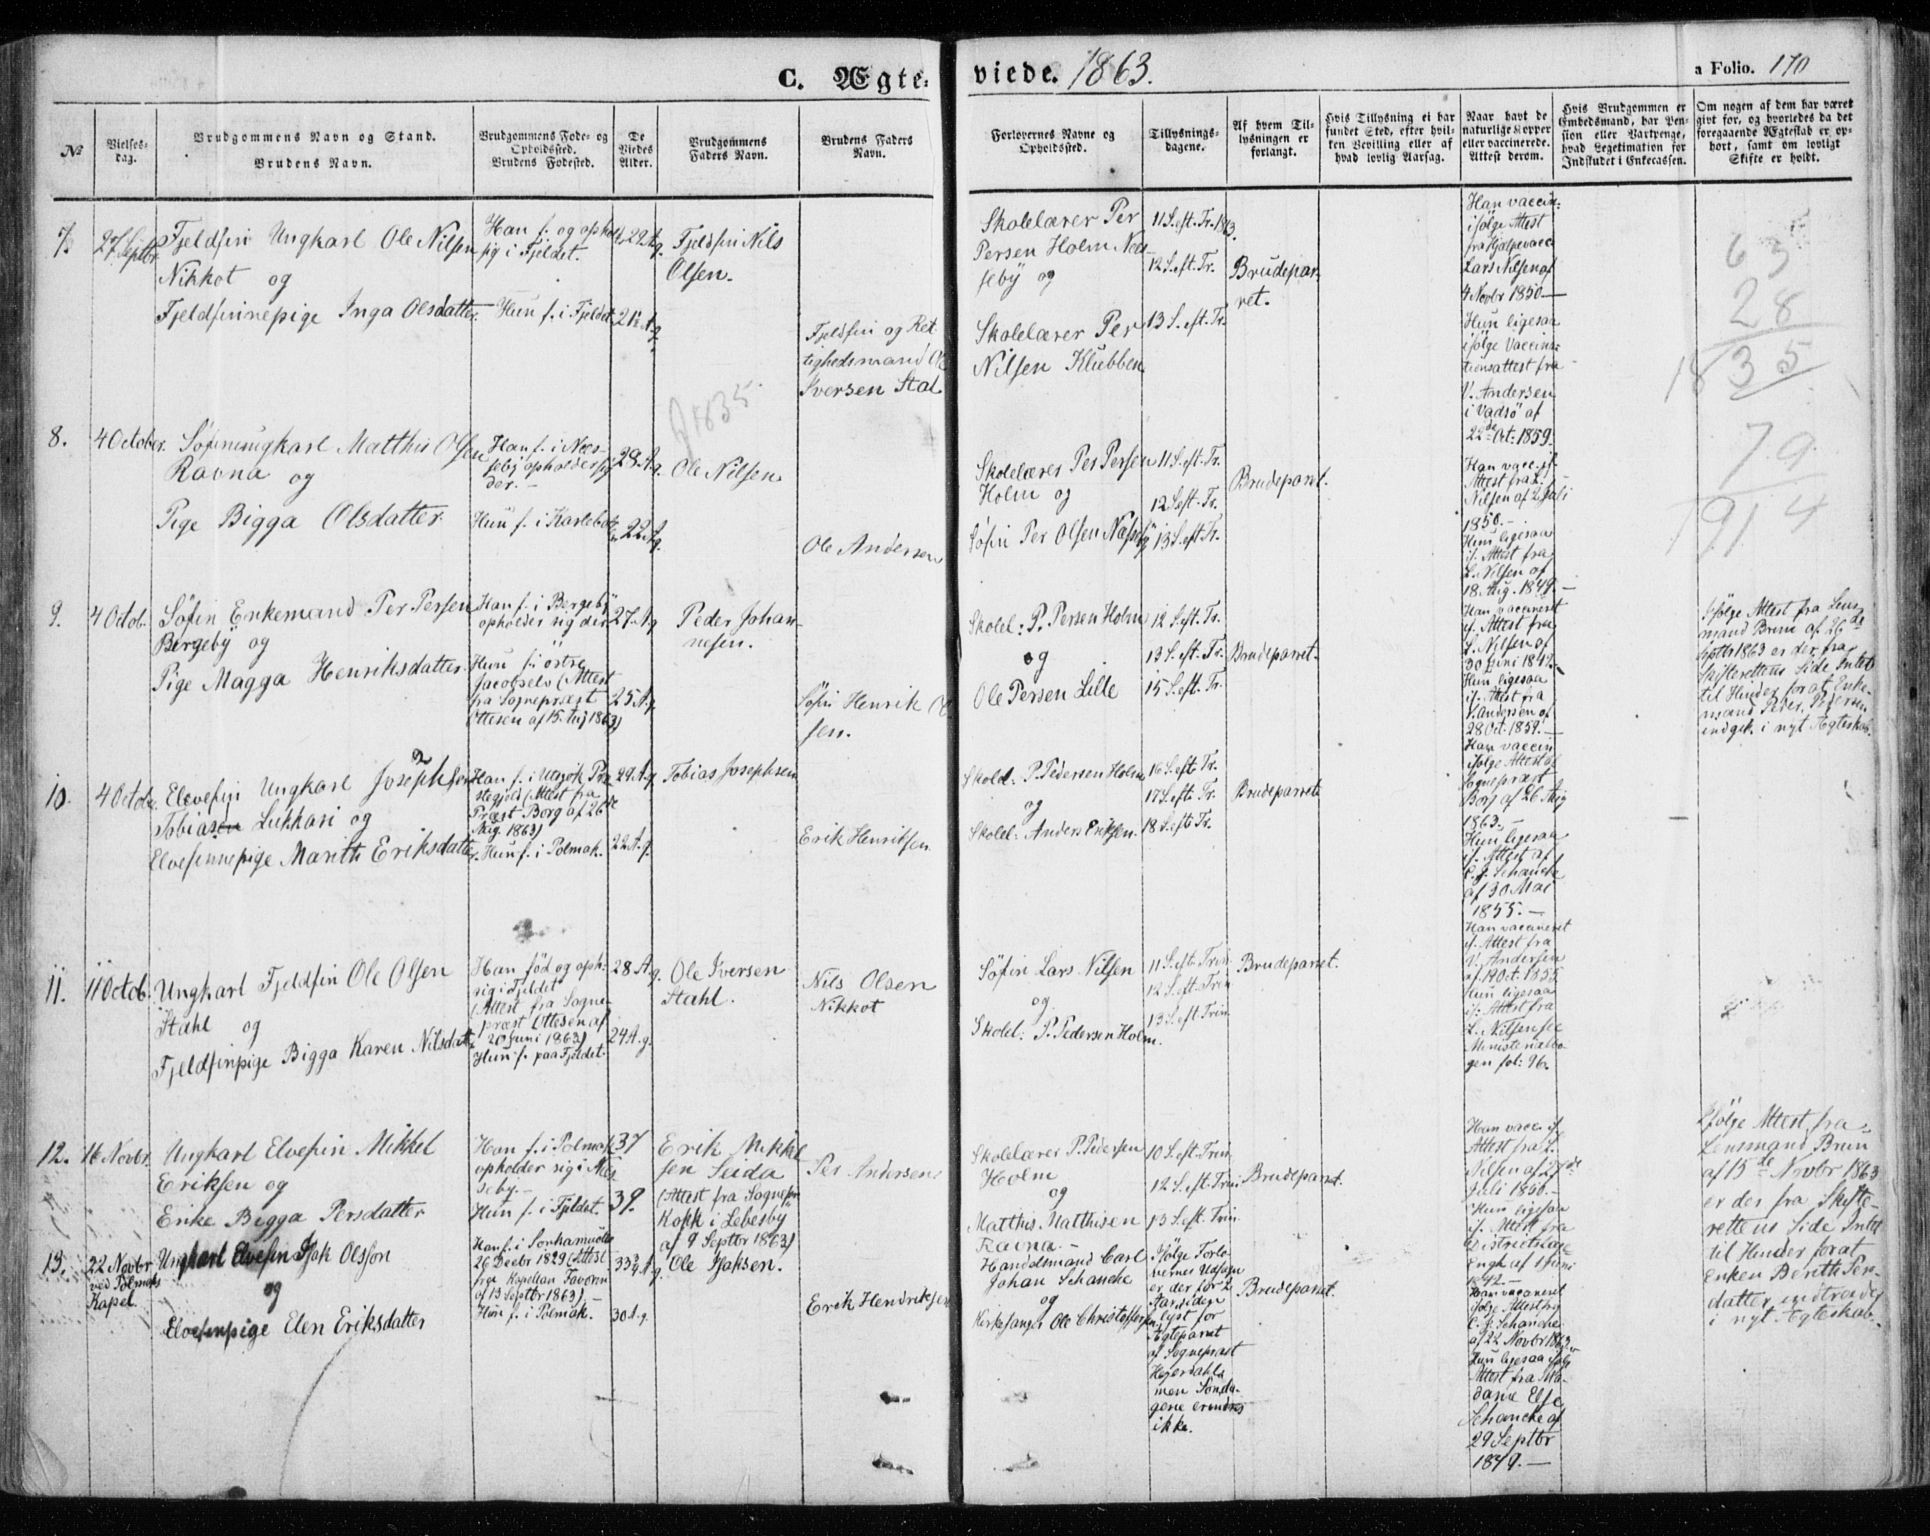 C. Ægte-
viede. 1863.
a Folio. 170
№
Vielses-
dag.
Brudgommens Navn og Stand.
Brudens Navn.
Brudgommens Føde- og
Opholdssted.
Brudens Fødested.
De
Viedes
Alder.
Brudgommens
Faders Navn.
Brudens Faders
Navn.
Forlovernes Navne og
Opholdssted.
Tillysnings-
dagene.
Af hvem Til-
lysningen er
forlangt.
Hvis Tillysning ei har
fundet Sted, efter hvil-
ken Bevilling eller af
hvad lovlig Aarsag.
Naar havt de
naturlige Kopper
eller vaccinerede.
Attest derom.
Hvis Brudgommen er
Embedsmand, har Pen-
sion eller Vartpenge,
hvad Legetimation for
Indskudet i Enkecassen.
Om nogen af dem har været
givt før, og hvorledes da det
foregaaende Ægteskab er op-
hørt, samt om lovligt
Skifte er holdt.
7.
27 Septbr
Fjeldfin Ungkarl Ole Nilsen
Nikkot og
Fjeldfinnepige Inga Olsdatter
Han f. og ophol
sig i Fjeldet.
Hun f. i Fjeldet
29 A. g.
21½ A. g.
Fjeldfin Nils
Olsen.
Fjeldfin og Ret
tighedsmand Ole
Iversen Stal
Skolelærer Per
Persen Holm Næs
seby og
Skolelærer Per
Nilsen Klubben
11 S. eft. Tr. 1863.
12 S. eft. Tr.
13 S. eft. Tr.
Brudepar-
ret.
Han vaccin-
ifølge Attest
fra Hjælpevacc
Lars Nilsen af
4 Novbr 1850 —
Hun ligesaa
ifølge Vaccina-
tionsattest fra
V. Andersen
i Vadsö af
22de Oct: 1859.
63
28
1835
79
1914
f 1835
8.
4 October.
Söfinungkarl Matthis Olsen
Ravna og
Pige Bigga Olsdatter
Han f. i Næs-
seby opholder sig
der. —
Hun f. i Karlebotn
28 A. g.
22 A. g.
Ole Nilsen
Ole Andersen
Skolelærer Per Persen
Holm og
Söfin Per Olsen Næsseby
11 S. eft. Tr.
12 S. eft. Tr.
13 S. eft. Tr.
Brudeparret.
Han vacc. if.
Attest fra L.
Nilsen af 2 Juli
1850. —
Hun ligesaa
if. Attest fra
L. Nilsen af
18 Aug. 1849. —
9.
4 Octob.
Söfin Enkemand Per Persen
Bergeby og
Pige Magga Henriksdatter
Han f. i Bergeby
opholder sig der
Hun f. i östre
Jacobselv (Attest
fra Sognepræst
Ottesen af 15. Aug 1863)
27 A. g
25 A. g.
Peder Johan-
nesen.
Söfin Henrik Ol
sen.
Skolel: P. Persen Holm
og
Ole Persen Lille
12 S. eft. Tr.
13 S. eft. Tr.
15 S. eft. Tr.
Brudeparret.
Han vaccineret
if. Attest fra
L. Nilsen af
30 Juni 1849.
Hun ligesaa
if. Attest fra
V. Andersen af
28 Oct. 1859. —
Ifølge Attest fra Lens
mand Brun af 26de
Septbr 1863 er der fra
Skifterettens Side Intet
til Hinder for at Enke-
mand Peder Pedersen
indgik i nyt Ægteskab.
10.
4 Octobr.
Elvefin Ungkarl Josephsen
Tobiasen Lukkari og
Elvefinnepige Marith Eriksdatter
Han f. i Utsjok Præ
stegjeld (Attest fra
Præst Borg af 26de
Aug. 1863)
Hun f. i Polmak.
29 A. g
22 A. g.
Tobias Josephsen
Erik Henriksen
Skolel: P. Pedersen Holm
og
Skolel: Anders Eriksen.
16 S. eft. Tr.
17 S. eft. Tr.
18 S. eft. Tr.
Brudeparret
Han vaccin
ifølge Attest af
Sognepræst
Borg af 26 Aug
1863. —
Hun ligesaa
if. Attest af
C. J. Schancke
af 30 Mai
1855. —
11.
11 Octob.
Ungkarl Fjeldfin Ole Olsen
Stahl og
Fjeldfinpige Bigga Karen Nilsdatt
Han född og oph.
sig i Fjeldet
(Attest fra Sogne-
præst Ottesen af
20 Juni 1863)
Hun f. paa Fjeldet.
28 A. g.
24 A. g.
Ole Iversen
Stahl.
Nils Olsen
Nikkot
Söfin Lars Nilsen
og
Skolel: P. Pedersen Holm.
11 S. eft. Trin
12 S. eft. Trin
13 S. eft Trin.
Brudeparret.
Han vaccineret
if. Attest fra
V. Andersen
af 19 Oct. 1855
Hun ligesaa
if. Attest fra
L. Nilsen see
Ministerialbo
gen fol: 96.
12.
16 Novbr.
Ungkarl Elvefin Mikkel
Eriksen og
Enke Bigga Persdatter
Han f. i Polmak
opholder sig i Næs
seby. —
Hun f. i Fjeldet.
37
39.
Erik Mikkel
sen Seida
(Attest fra Sognepr
Kokk i Lebesby
af 9 Septbr 1863)
Per Andersen
Skolelærer P. Pedersen
Holm
og
Matthis Matthisen
Ravna. —
10 S. eft. Trin
12 S. eft. Trin
13 S. eft. Trin
Brudeparret.
Han vacc. if.
Attest fra L.
Nilsen af 27de
Juli 1850. —
Hun ligesaa
if. Attest fra
Districtslæge
Engh af 1 Juni
1842. —
Ifølge Attest fra
Lensmand Brun
af 15de Novbr 1863
er der fra Skifte-
rettens Side Intet
til Hinder for at
Enken Berith Pers
datter indtræder
i nyt Ægteskab.
13.
22 Novbr
ved Polmaks
Kapel.
Ungkarl Elvefin Isak Olsson
og
Elvefinpige Elen Eriksdatter
Han f. i Sonhamuotka
26 Decbr 1829 (Attest
fra Kapellan Favorin
af 13 Septbr 1863) —
Hun f. i Polmak.
33¾ A. g
30 A. g.
Ole Isaksen.
Erik Hendriksen
Handelsmand Carl
Johan Schancke
og
Kirkesanger Ole Christophersen
Ifølge Forlo
vernes Udsagn
er der for 2
Aar siden
lyst for
Ægteparret
af Sognepræst
Hejerdahl
men Sönda-
gene erindres
ikke.
Brudeparret.
Han vaccineret
ifølge Attest fra
C. J. Schancke
af 22 Novbr 1863
Hun ligesaa ifølg
Attest fra Ma-
dame Else
Schancke af
29 Septbr
1849. —